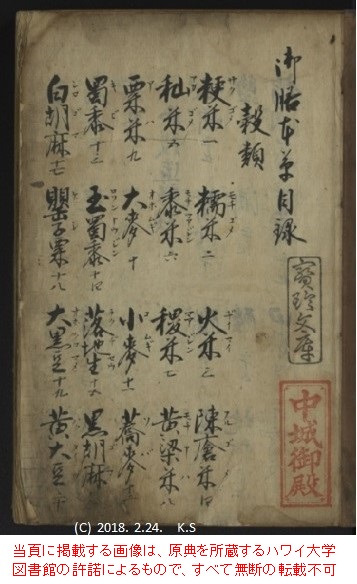 御膳本草目録
寳玲文庫
中城御殿
穀類
粳米 一 糯米 二 火米 三 陳倉米 四
秈米 五 黍米 六 稷米 七 黄粱米 八
粟米 九 大麥 十 小麥 十一 蕎麥
蜀黍 十三 玉蜀黍 十四 落地生 十五 黒胡麻
白胡麻 十七 罌子粟 十八 大黒豆 十九 黄大豆
(C) 2018. 2.24. K.S
当頁に掲載する画像は、原典を所蔵するハワイ大学
図書館の許諾によるもので、すべて無断の転載不可